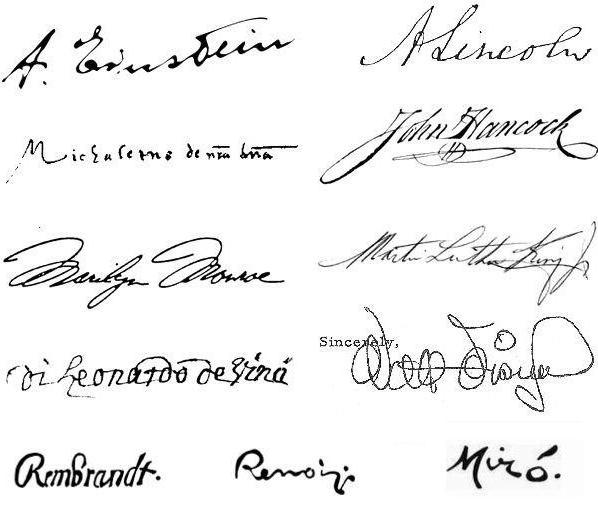 A. Einstein
A Lincoln
Michelagnolo
John Hancock
Marilyn Monroe
Martin Luther King Jr
Sincerely,
Walt Disney
di Leonardo de Vinci
Rembrandt.
Renoir.
Miró.